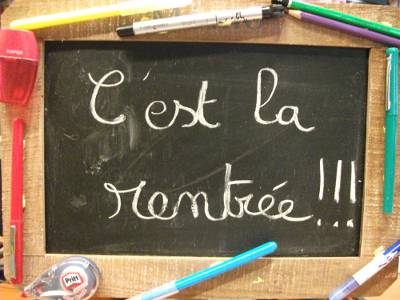 C'est la
rentrée!!!
Pritt